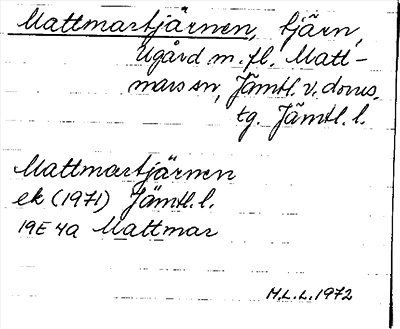 Mattmartjärnen, tjärn,
Ugård m. fl. Matt-
mars sn, Jämtl. v. doms.
tg. Jämtl. l.
Mattmartjärnen
ek (1971) Jämtl. l.
19E 4a Mattmar
H.L.L. 1972